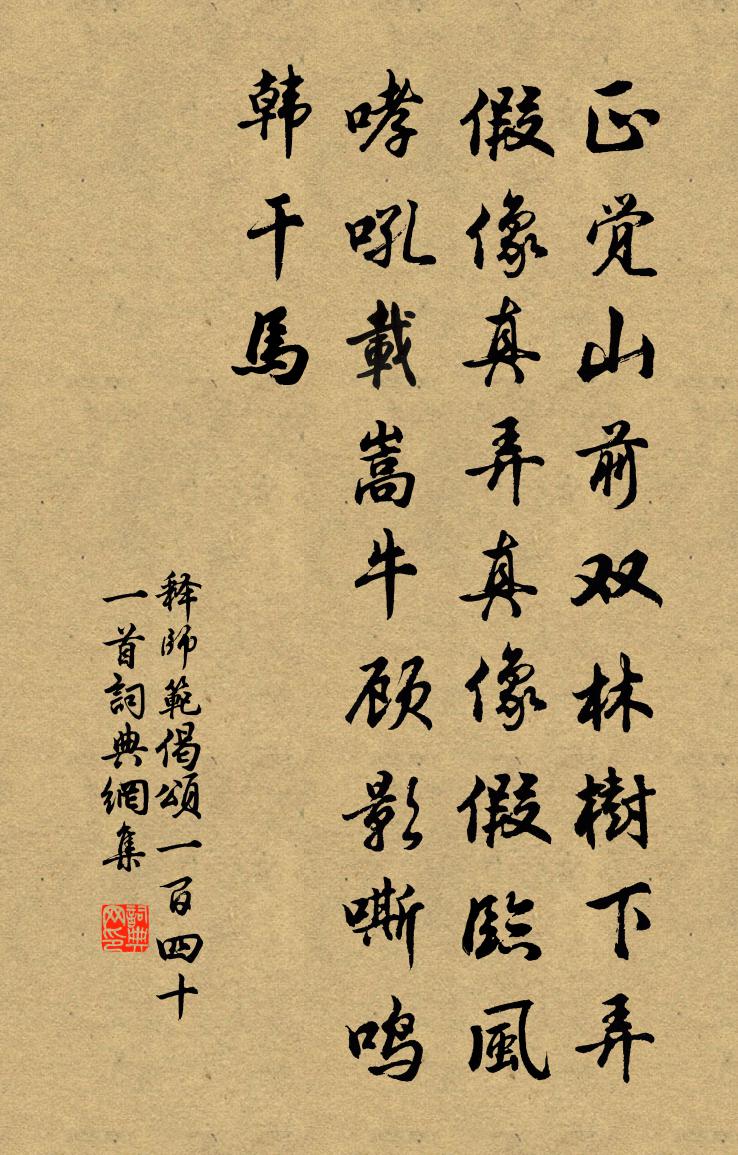 正觉山前双林樹下弄
假像真弄真像假臨風
哮吼載嵩牛顾影嘶鸣
韩干馬
释師範偈頌一百四十
一首詞典網集
詞典网印